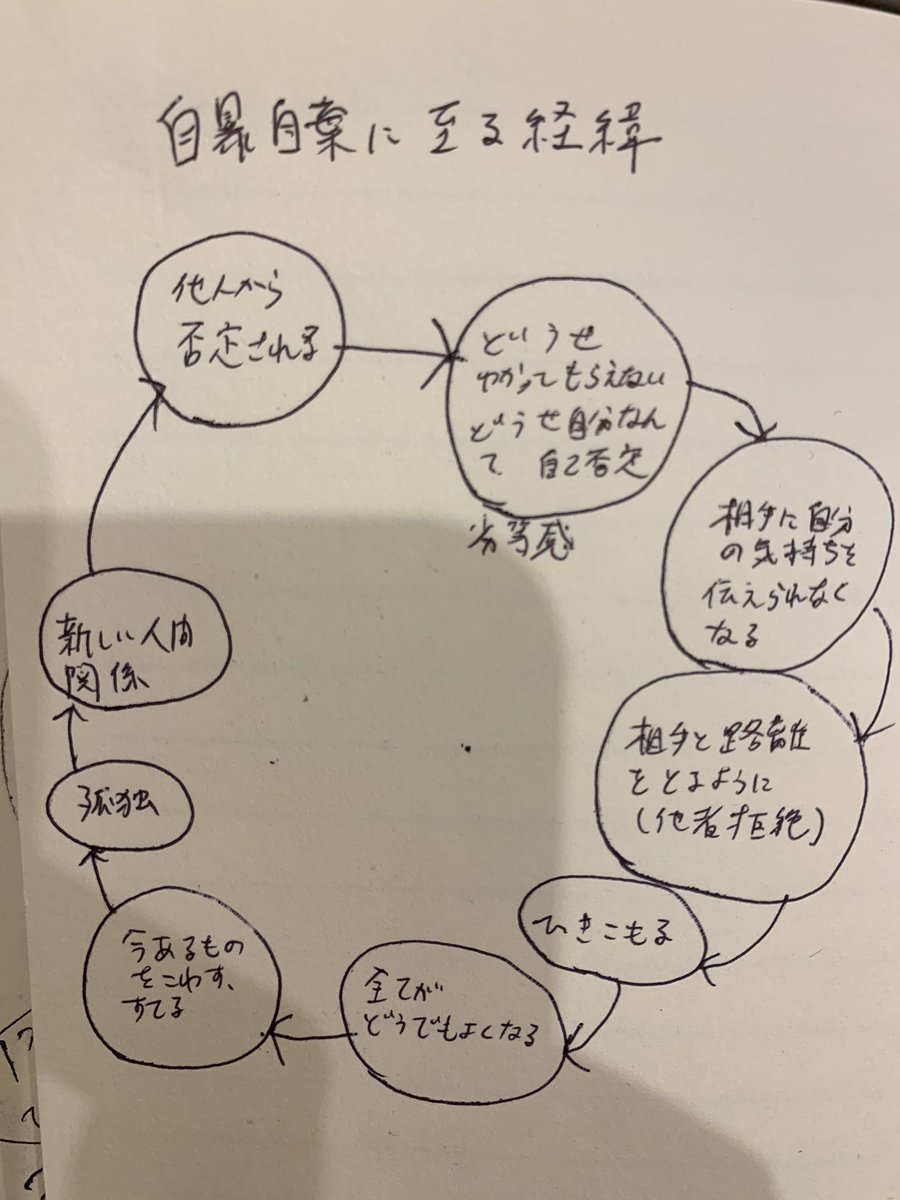 自暴自棄に至る経緯
他人から
否定される
というせ
わかってもらえない
どうせ自分なん
て 自己否定
劣等感
相手に自分
の気持ちを
伝えられなく
なる
相手と距離
をとるように
(他者拒絶)
ひきこもる
全てが
どうでもよくなる
今あるもの
をこわす、
すてる
孤独
新しい人間
関係